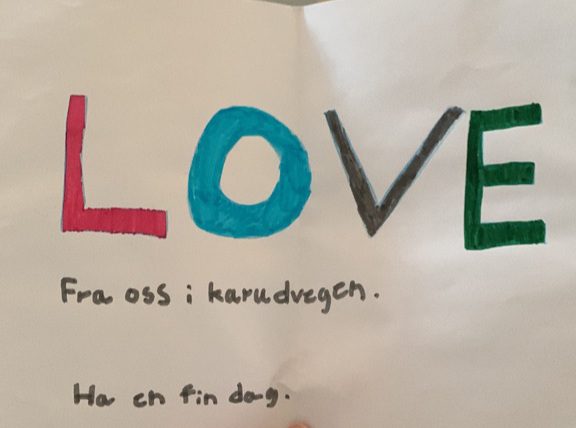 LOVE
Fra oss i karudvegen.
Ha en fin dag.